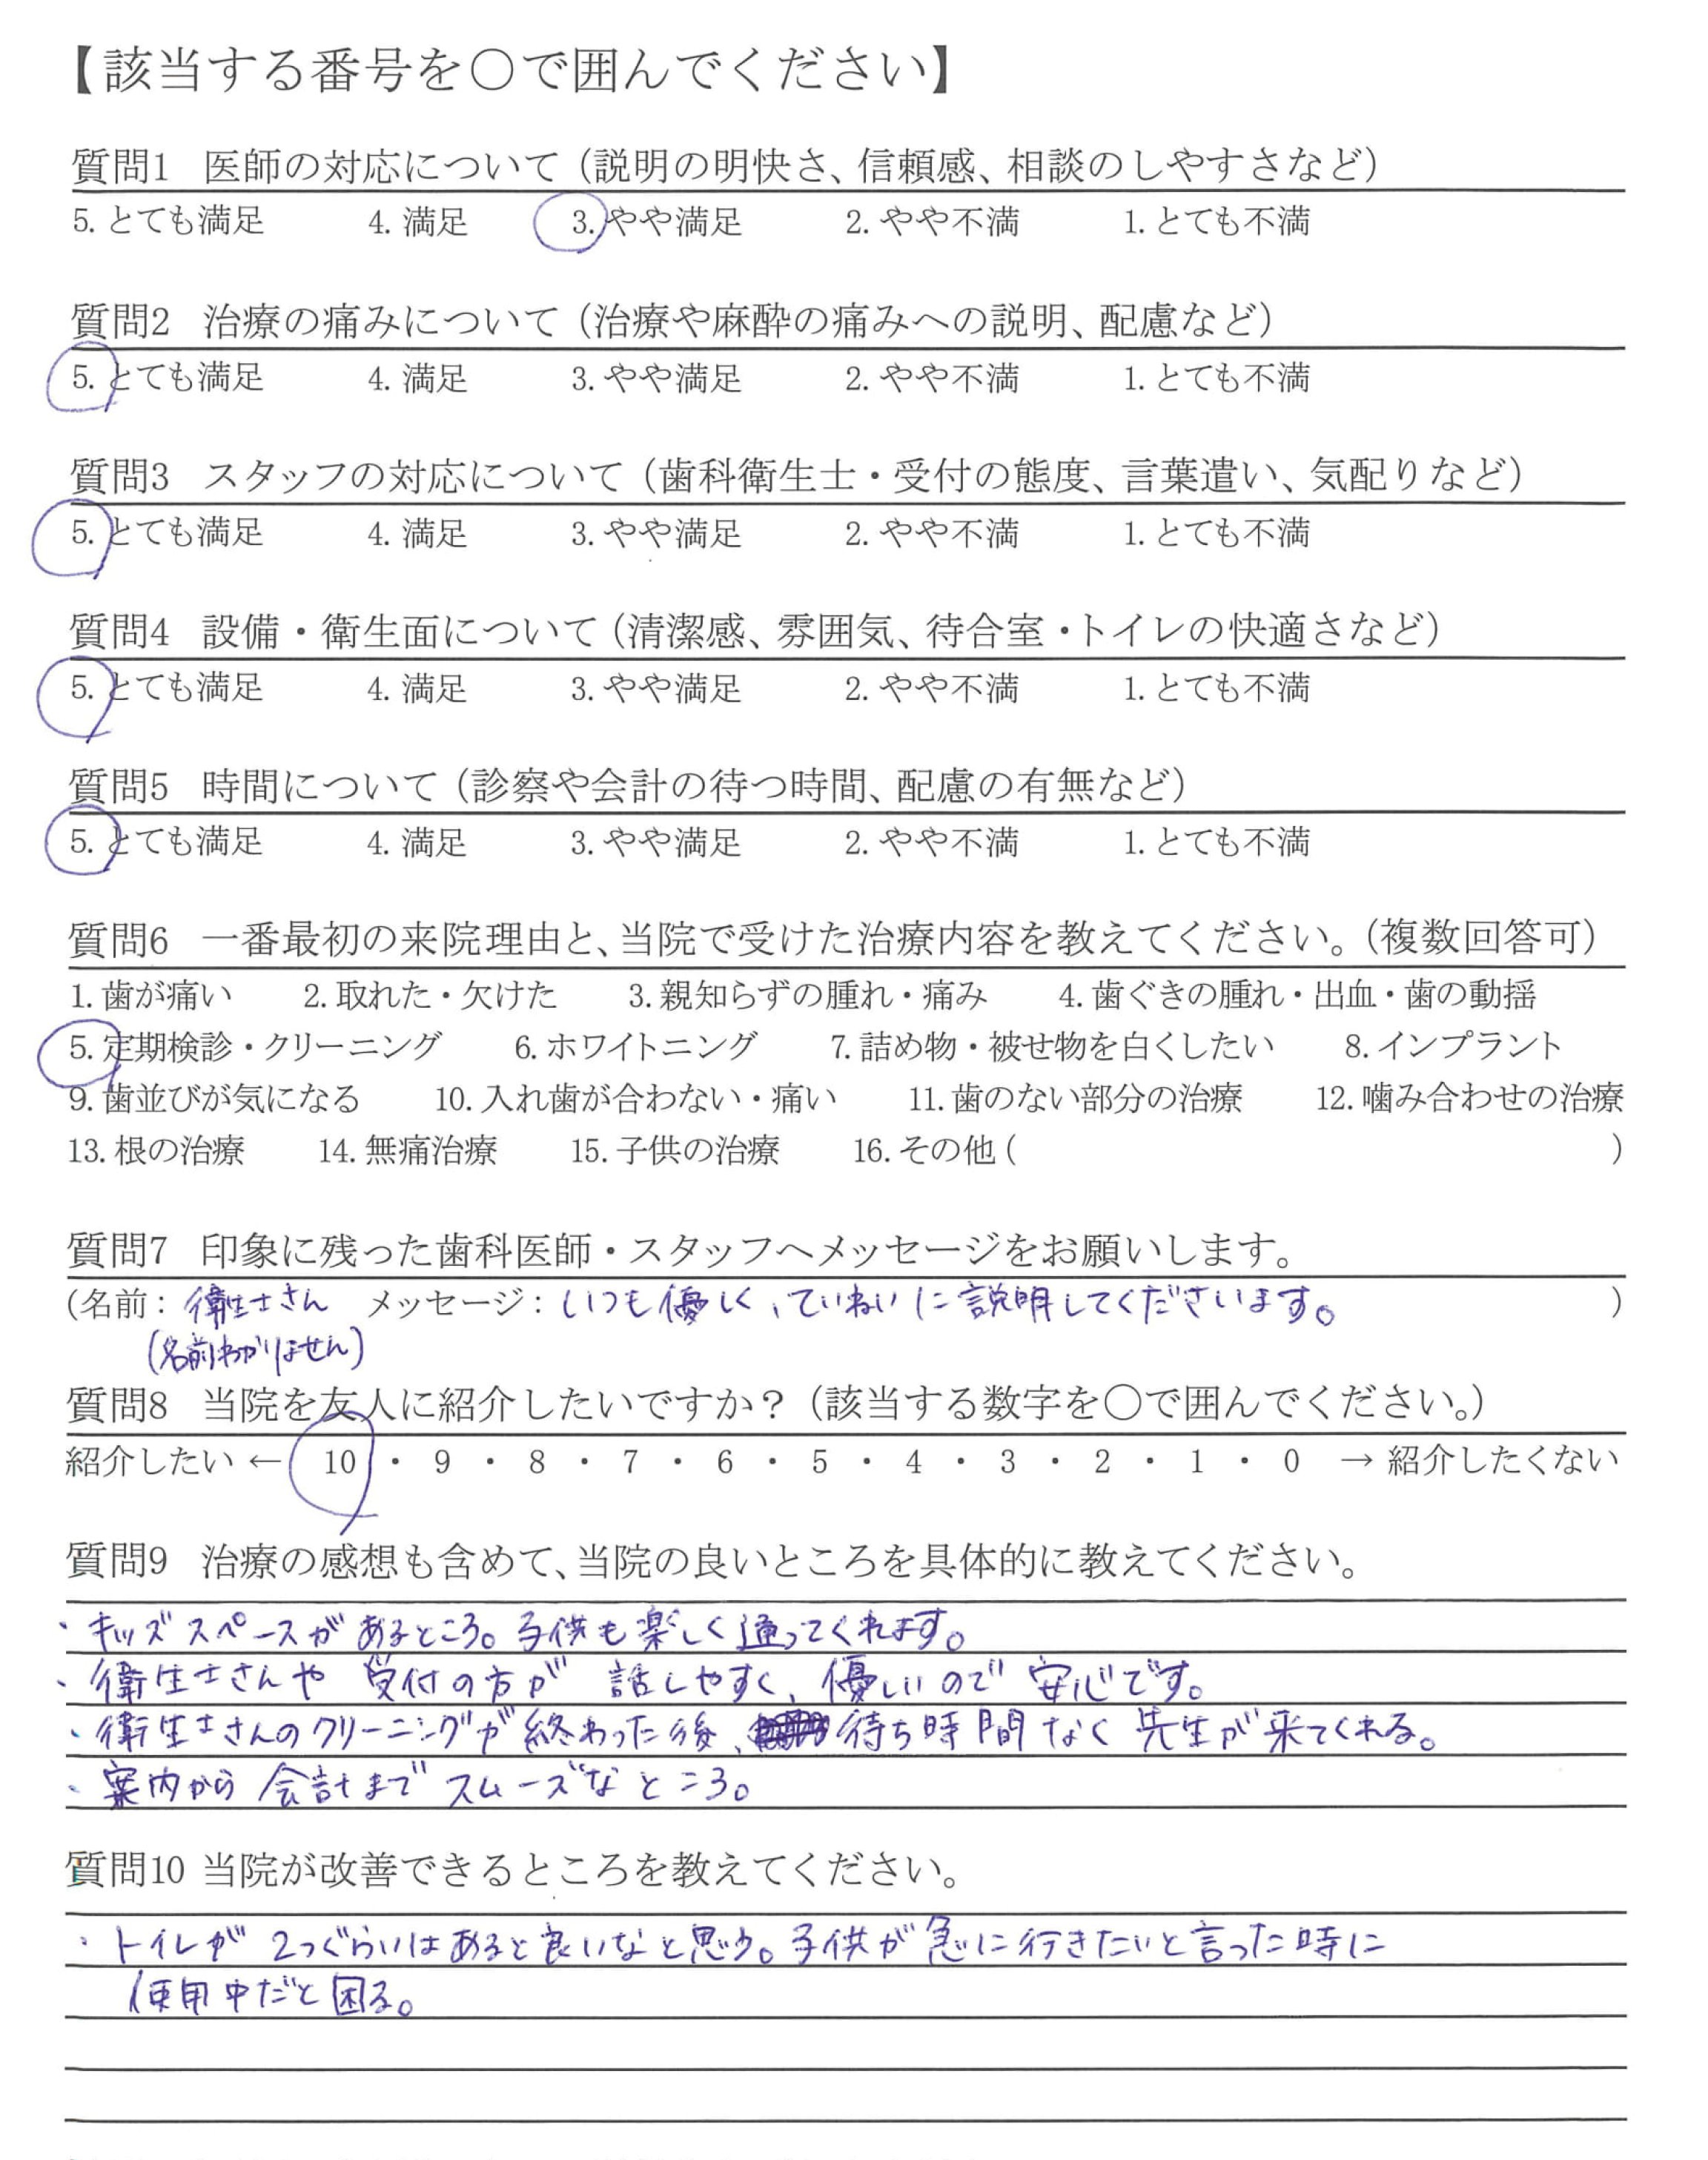 【該当する番号を〇で囲んでください】
質問1 医師の対応について（説明の明快さ、信頼感、相談のしやすさなど）
5. とても満足 4. 満足 3. やや満足 2. やや不満 1. とても不満
質問2 治療の痛みについて（治療や麻酔の痛みへの説明、配慮など）
5. とても満足 4. 満足 3. やや満足 2. やや不満 1. とても不満
質問3 スタッフの対応について（歯科衛生士・受付の態度、言葉遣い、気配りなど）
5. とても満足 4. 満足 3. やや満足 2. やや不満 1. とても不満
質問4 設備・衛生面について（清潔感、雰囲気、待合室・トイレの快適さなど）
5. とても満足 4. 満足 3. やや満足 2. やや不満 1. とても不満
質問5 時間について（診察や会計の待つ時間、配慮の有無など）
5. とても満足 4. 満足 3. やや満足 2. やや不満 1. とても不満
質問6 一番最初の来院理由と、当院で受けた治療内容を教えてください。（複数回答可）
1. 歯が痛い 2. 取れた・欠けた 3. 親知らずの腫れ・痛み 4. 歯ぐきの腫れ・出血・歯の動揺
5. 定期検診・クリーニング 6. ホワイトニング 7. 詰め物・被せ物を白くしたい 8. インプラント
9. 歯並びが気になる 10. 入れ歯が合わない・痛い 11. 歯のない部分の治療 12. 噛み合わせの治療
13. 根の治療 14. 無痛治療 15. 子供の治療 16. その他 ( )
質問7 印象に残った歯科医師・スタッフへメッセージをお願いします。
(名前： 衛生士さん メッセージ： いつも優しく、ていねいに説明してくださいます。 )
(名前わかりません)
質問8 当院を友人に紹介したいですか？（該当する数字を〇で囲んでください。）
紹介したい ← 10 ・ 9 ・ 8 ・ 7 ・ 6 ・ 5 ・ 4 ・ 3 ・ 2 ・ 1 ・ 0 → 紹介したくない
質問9 治療の感想も含めて、当院の良いところを具体的に教えてください。
・キッズスペースがあるところ。子供も楽しく通ってくれます。
・衛生士さんや受付の方が話しやすく、優しいので安心です。
・衛生士さんのクリーニングが終わった後、待ち時間なく先生が来てくれる。
・案内から会計までスムーズなところ。
質問10 当院が改善できるところを教えてください。
・トイレが2つぐらいはあると良いなと思う。子供が急に行きたいと言った時に
使用中だと困る。